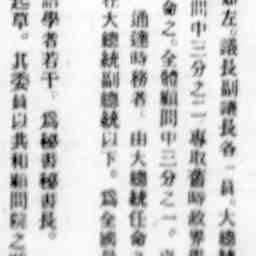 如左。議長副議長各一員。大總統
問中三分之二。專取舊時政界
命之。全體顧問中三分之一。
通達時務者。由大總統任命
在大總統副總統以下。爲全國
語學者若干。爲秘書秘書長。
起草。其委員以共和顧問院之